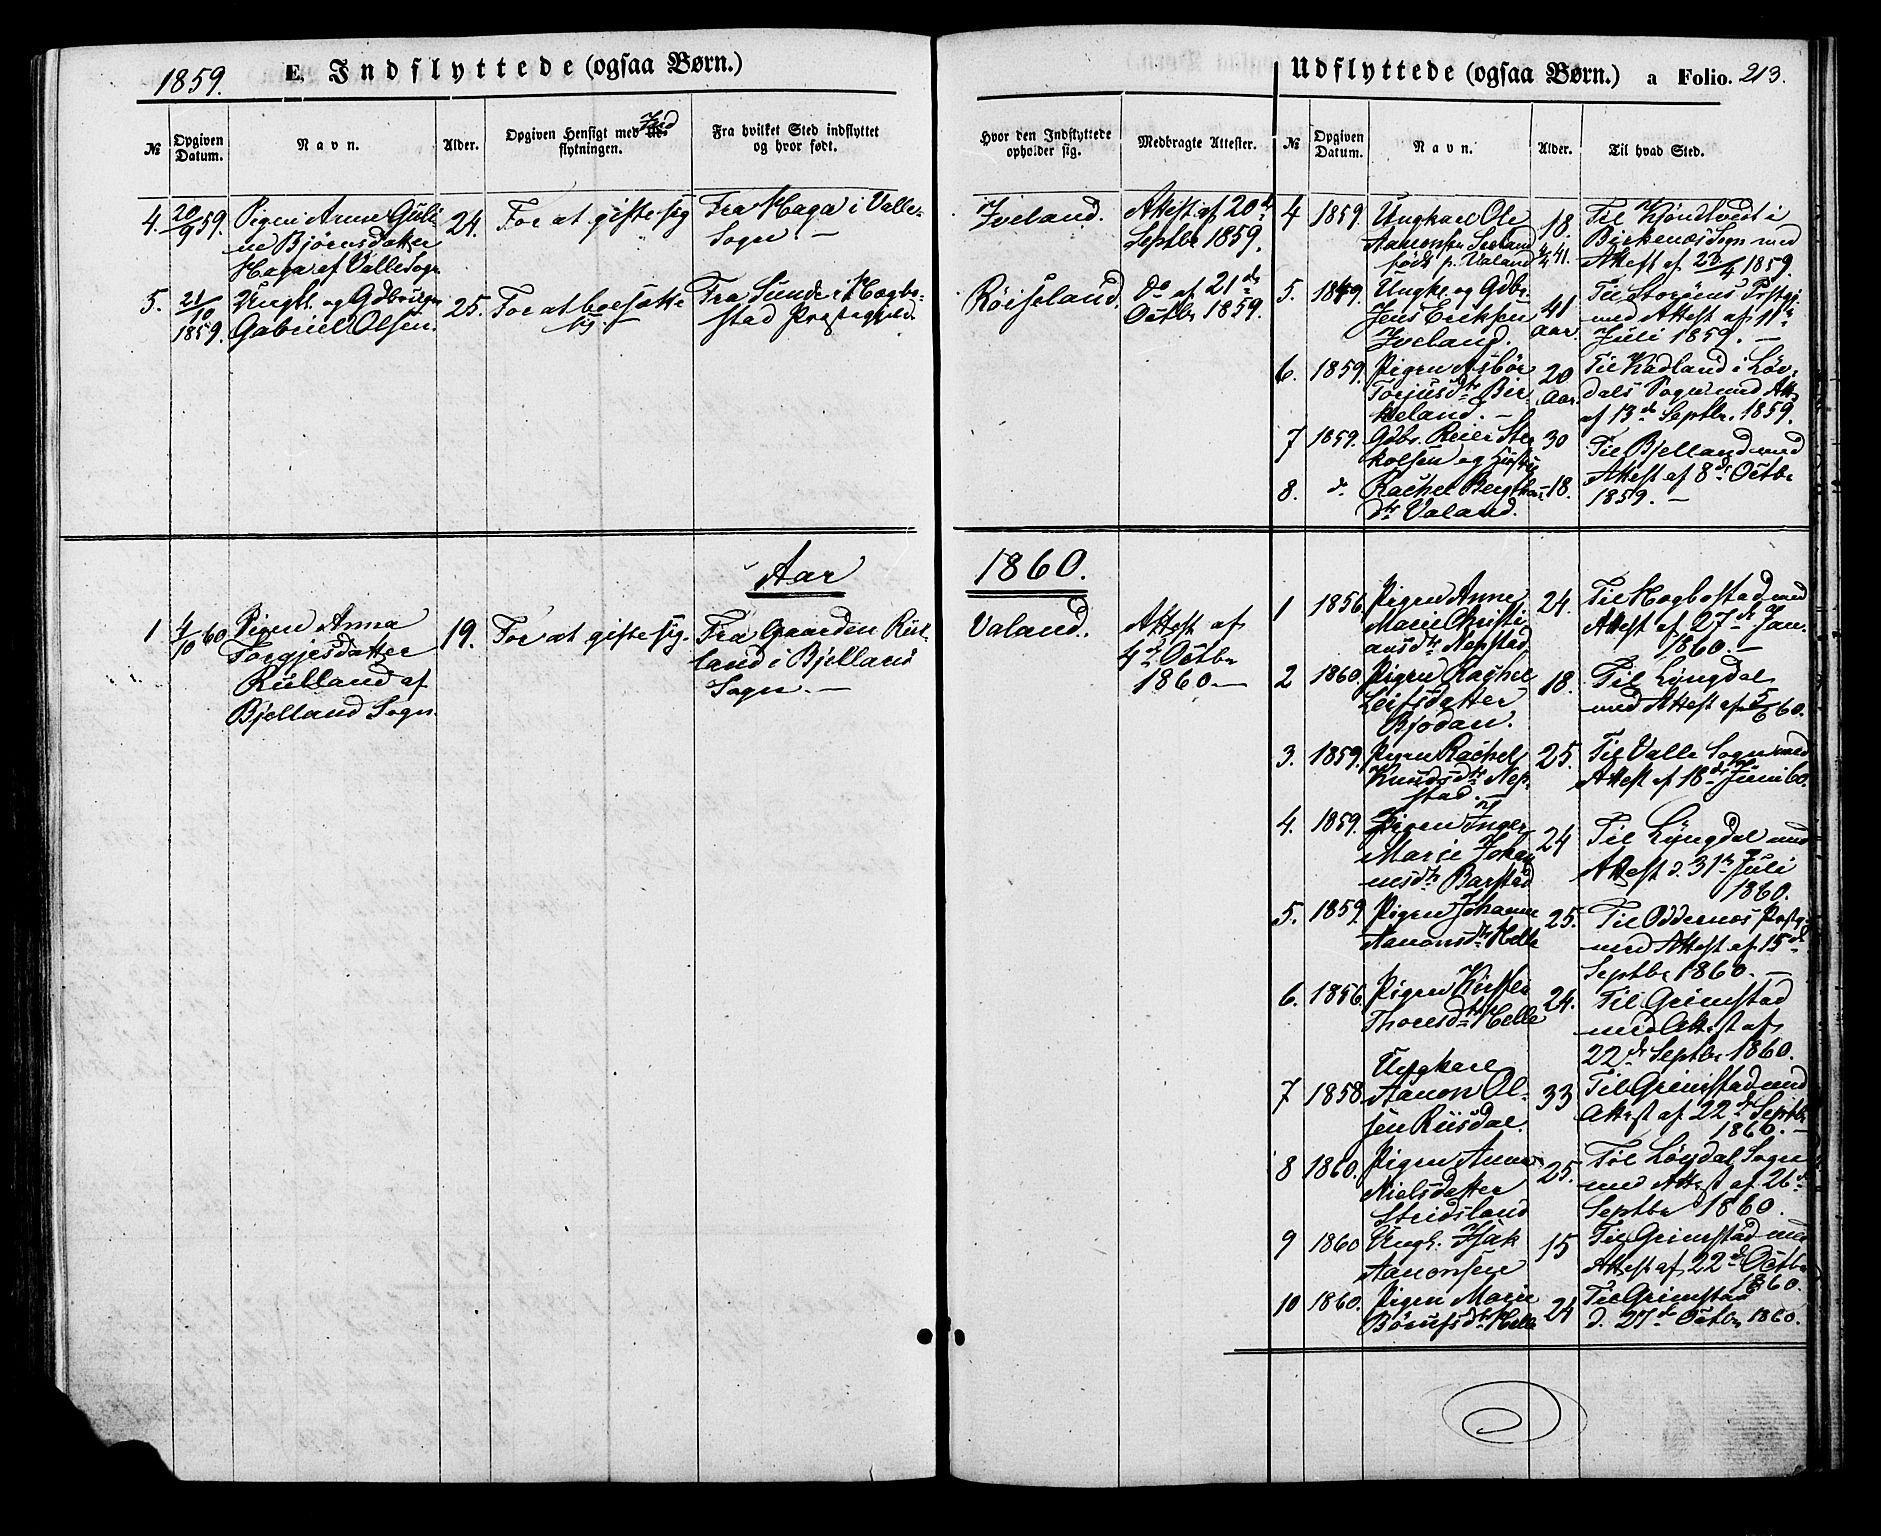 1859.
E. Indflyttede (ogsaa Børn.)
№
Opgiven Datum.
Navn.
Alder.
Opgiven Hensigt med Ind flytningen.
Fra hvilket Sted indflyttet og hvor født.
Hvor den Indflyttede opholder sig.
Medbragte Attester.
4. 20/9 59. Pigen Anne Guli 24. For at gifte sig Fra Haga i Valle- Iveland. Attest af 20de
ne Bjørnsdatter Sogn. – Septbr 1859.
Haga af Valle Sogn
5. 21/10 Ungk. og Gdbrsøgn 25. For at bosætte Fra Sunde i Hægbo- Røiseland. do af 21de
1859. Gabriel Olsen. sig. – stad Præstegjeld. Octbr 1859.
Aar 1860.
1 4/10 60 Pigen Anna 19. For at gifte sig. Fra Gaarden Riis- Valand. Attest af
Torgjesdatter land i Bjelland 4de Octbr
Risland af Sogn. – 1860. –
Bjelland Sogn.
Udflyttede (ogsaa Børn.) a Folio. 213.
№
Opgiven Datum.
Navn.
Alder.
Til hvad Sted.
4 1859. Ungkarl Ole 18. Til Kjøndtvedt i
Aanonsen Birkenæs Sogn med
født p. Valand 41. Attest af 28/4 1859.
5. 1859. Ungk. og Gdbr. 41 Til Storøens Præstgj.
Jens Eriksen Aar. med Attest af 11te
Iveland. Juli 1859. –
6. 1859. Pigen Asbør 20 Til Hadland i Løv-
Torjusdtr Bir- Aar. dals Sogn med Att.
keland. – af 13de Septbr. 1859.
7 1859. Gdbr. Reier Ste 30 Til Bjelland med
kolsen og Hustru Attest af 8de Octbr
8. do Rachel Bergthe 18. 1859. –
dtr Valand.
1 1856. Pigen Anne 24. Til Hægbostad med
Marie Christi Attest af 27de Jan.
ansdtr Nepstad 1860. –
2 1860. Pigen Rachel 18. Til Lyngdal
Leifsdatter med Attest af 5/6 60.
Bjodan.
3. 1859. Pigen Rachel 25. Til Valle Sogn med
Knudsdtr Nep- Attest af 18de Juni 60.
stad. –
4. 1859. Pigen Inger 24 Til Lyngdal med
Marie Johan Attest d. 31te Juli
nesdtr Barstad 1860.
5. 1859. Pigen Johanne 25. Til Oddernæs Præstg.
Aanonsdtr Helle med Attest af 15de
Septbr 1860. –
6. 1856. Pigen Kirsten 24. Til Grimstad
Thoresdtr Helle med Attest af
22de Septbr 1860.
7 1858. Ungkarl 33 Til Grimstad med
Aanon Ol- Attest af 22de Septbr
sen Riisdal. 1860. –
8 1860. Pigen Anne 25. Til Løvdal Sogn
Nielsdatter med Attest af 26de
Stridsland Septbr 1860.
9 1860 Ungk. Isak 15 Til Grimstad med
Aanonsen Attest af 22de Octbr
1860.
10 1860. Pigen Marie 24 Til Grimstad
Børufsdtr Helle d. 27de Octbr 1860.